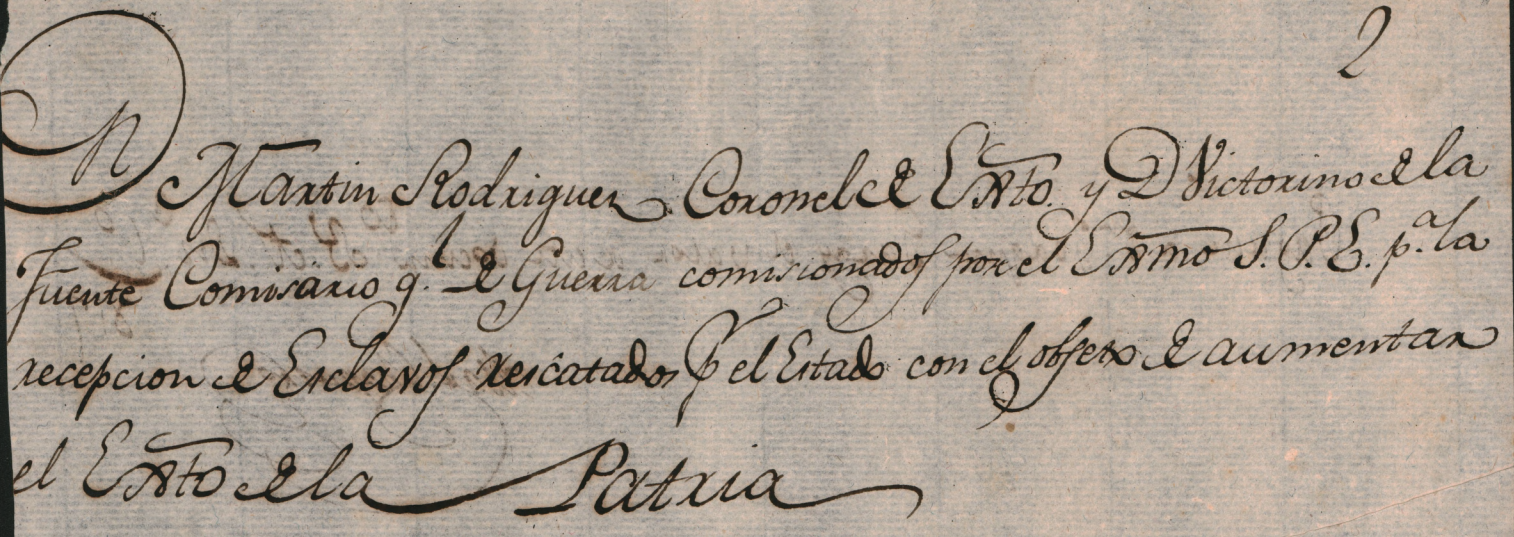 2
Dn Martin Rodriguez Coronel de Exto. y D Victorino de la
Fuente Comisario g.l de Guerra comisionados por el Exmo S. P. E. p.a la
recepcion de Esclavos rescatados p el Estado con el obgeto de aumentar
el Exto de la Patria